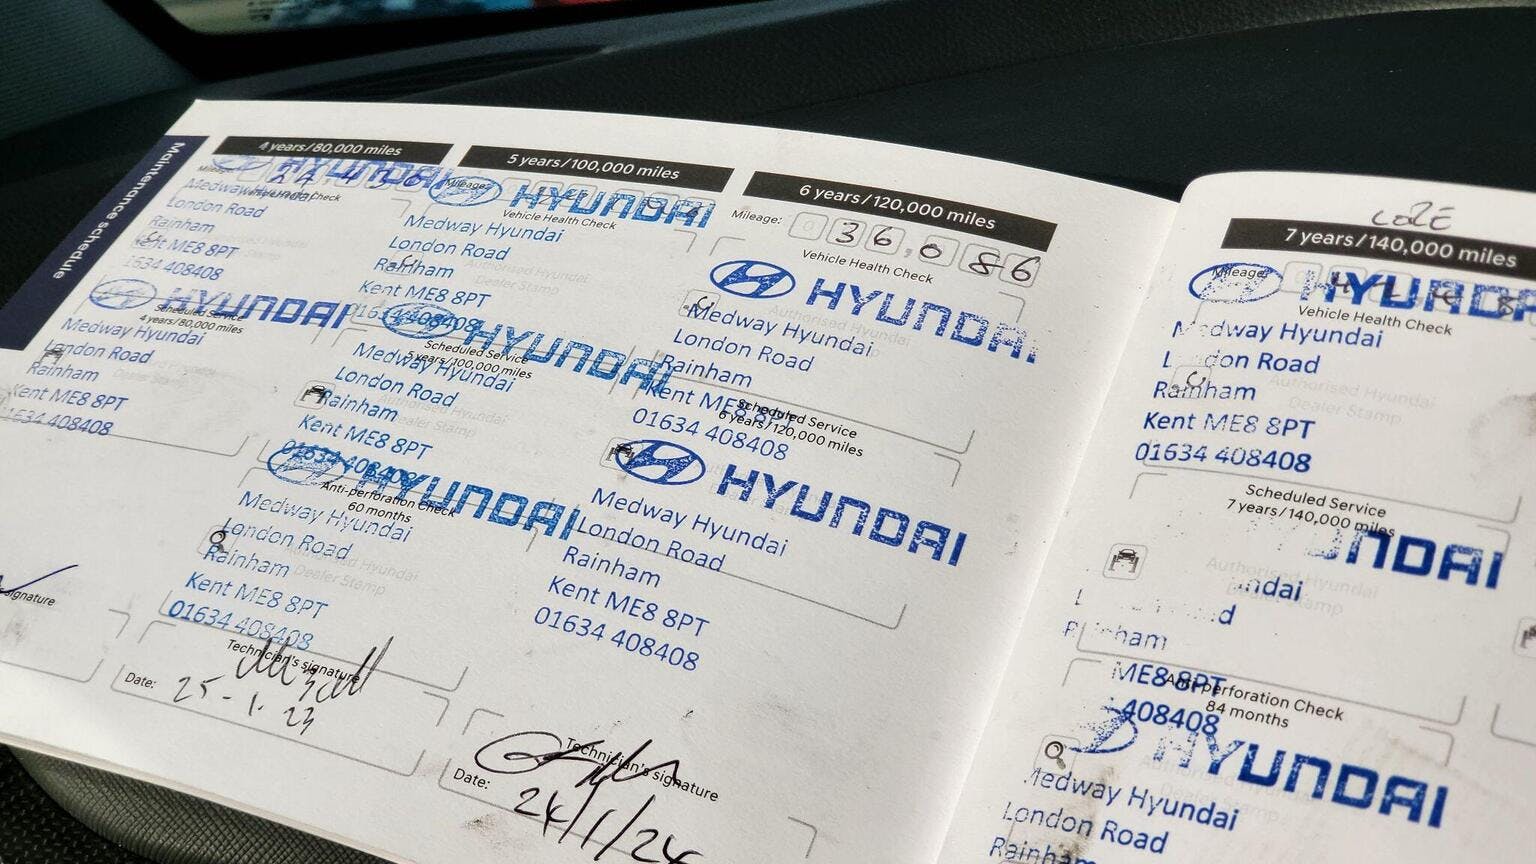 Maintenance schedule
4 years/80,000 miles
HYUNDAI
Vehicle Health Check
Medway Hyundai
London Road
Rainham
Kent ME8 8PT
01634 408408
HYUNDAI
Scheduled Service
4 years/80,000 miles
Medway Hyundai
London Road
Rainham
Kent ME8 8PT
01634 408408
signature
5 years/100,000 miles
Mileage:
HYUNDAI
Vehicle Health Check
Medway Hyundai
London Road
Rainham
Kent ME8 8PT
01634 408408
Authorised Hyundai
Dealer Stamp
HYUNDAI
Scheduled Service
5 years/100,000 miles
Medway Hyundai
London Road
Rainham
Kent ME8 8PT
01634 408408
Authorised Hyundai
Dealer Stamp
HYUNDAI
Anti-perforation Check
60 months
Medway Hyundai
London Road
Rainham
Kent ME8 8PT
01634 408408
Authorised Hyundai
Dealer Stamp
Technician's signature
Date: 25-1-23
6 years/120,000 miles
Mileage: 0 36,086
Vehicle Health Check
HYUNDAI
Medway Hyundai
London Road
Rainham
Kent ME8 8PT
01634 408408
Authorised Hyundai
Scheduled Service
6 years/120,000 miles
HYUNDAI
Medway Hyundai
London Road
Rainham
Kent ME8 8PT
01634 408408
Technician's signature
Date: 24/1/24
7 years/140,000 miles
Mileage:
HYUNDAI
Vehicle Health Check
Medway Hyundai
London Road
Rainham
Kent ME8 8PT
01634 408408
Authorised Hyundai
Dealer Stamp
Scheduled Service
7 years/140,000 miles
UNDAI
ndai
d
ham
ME8 8PT
408408
Authorised Hyundai
Dealer Stamp
Anti-perforation Check
84 months
HYUNDAI
Medway Hyundai
London Road
Rainham